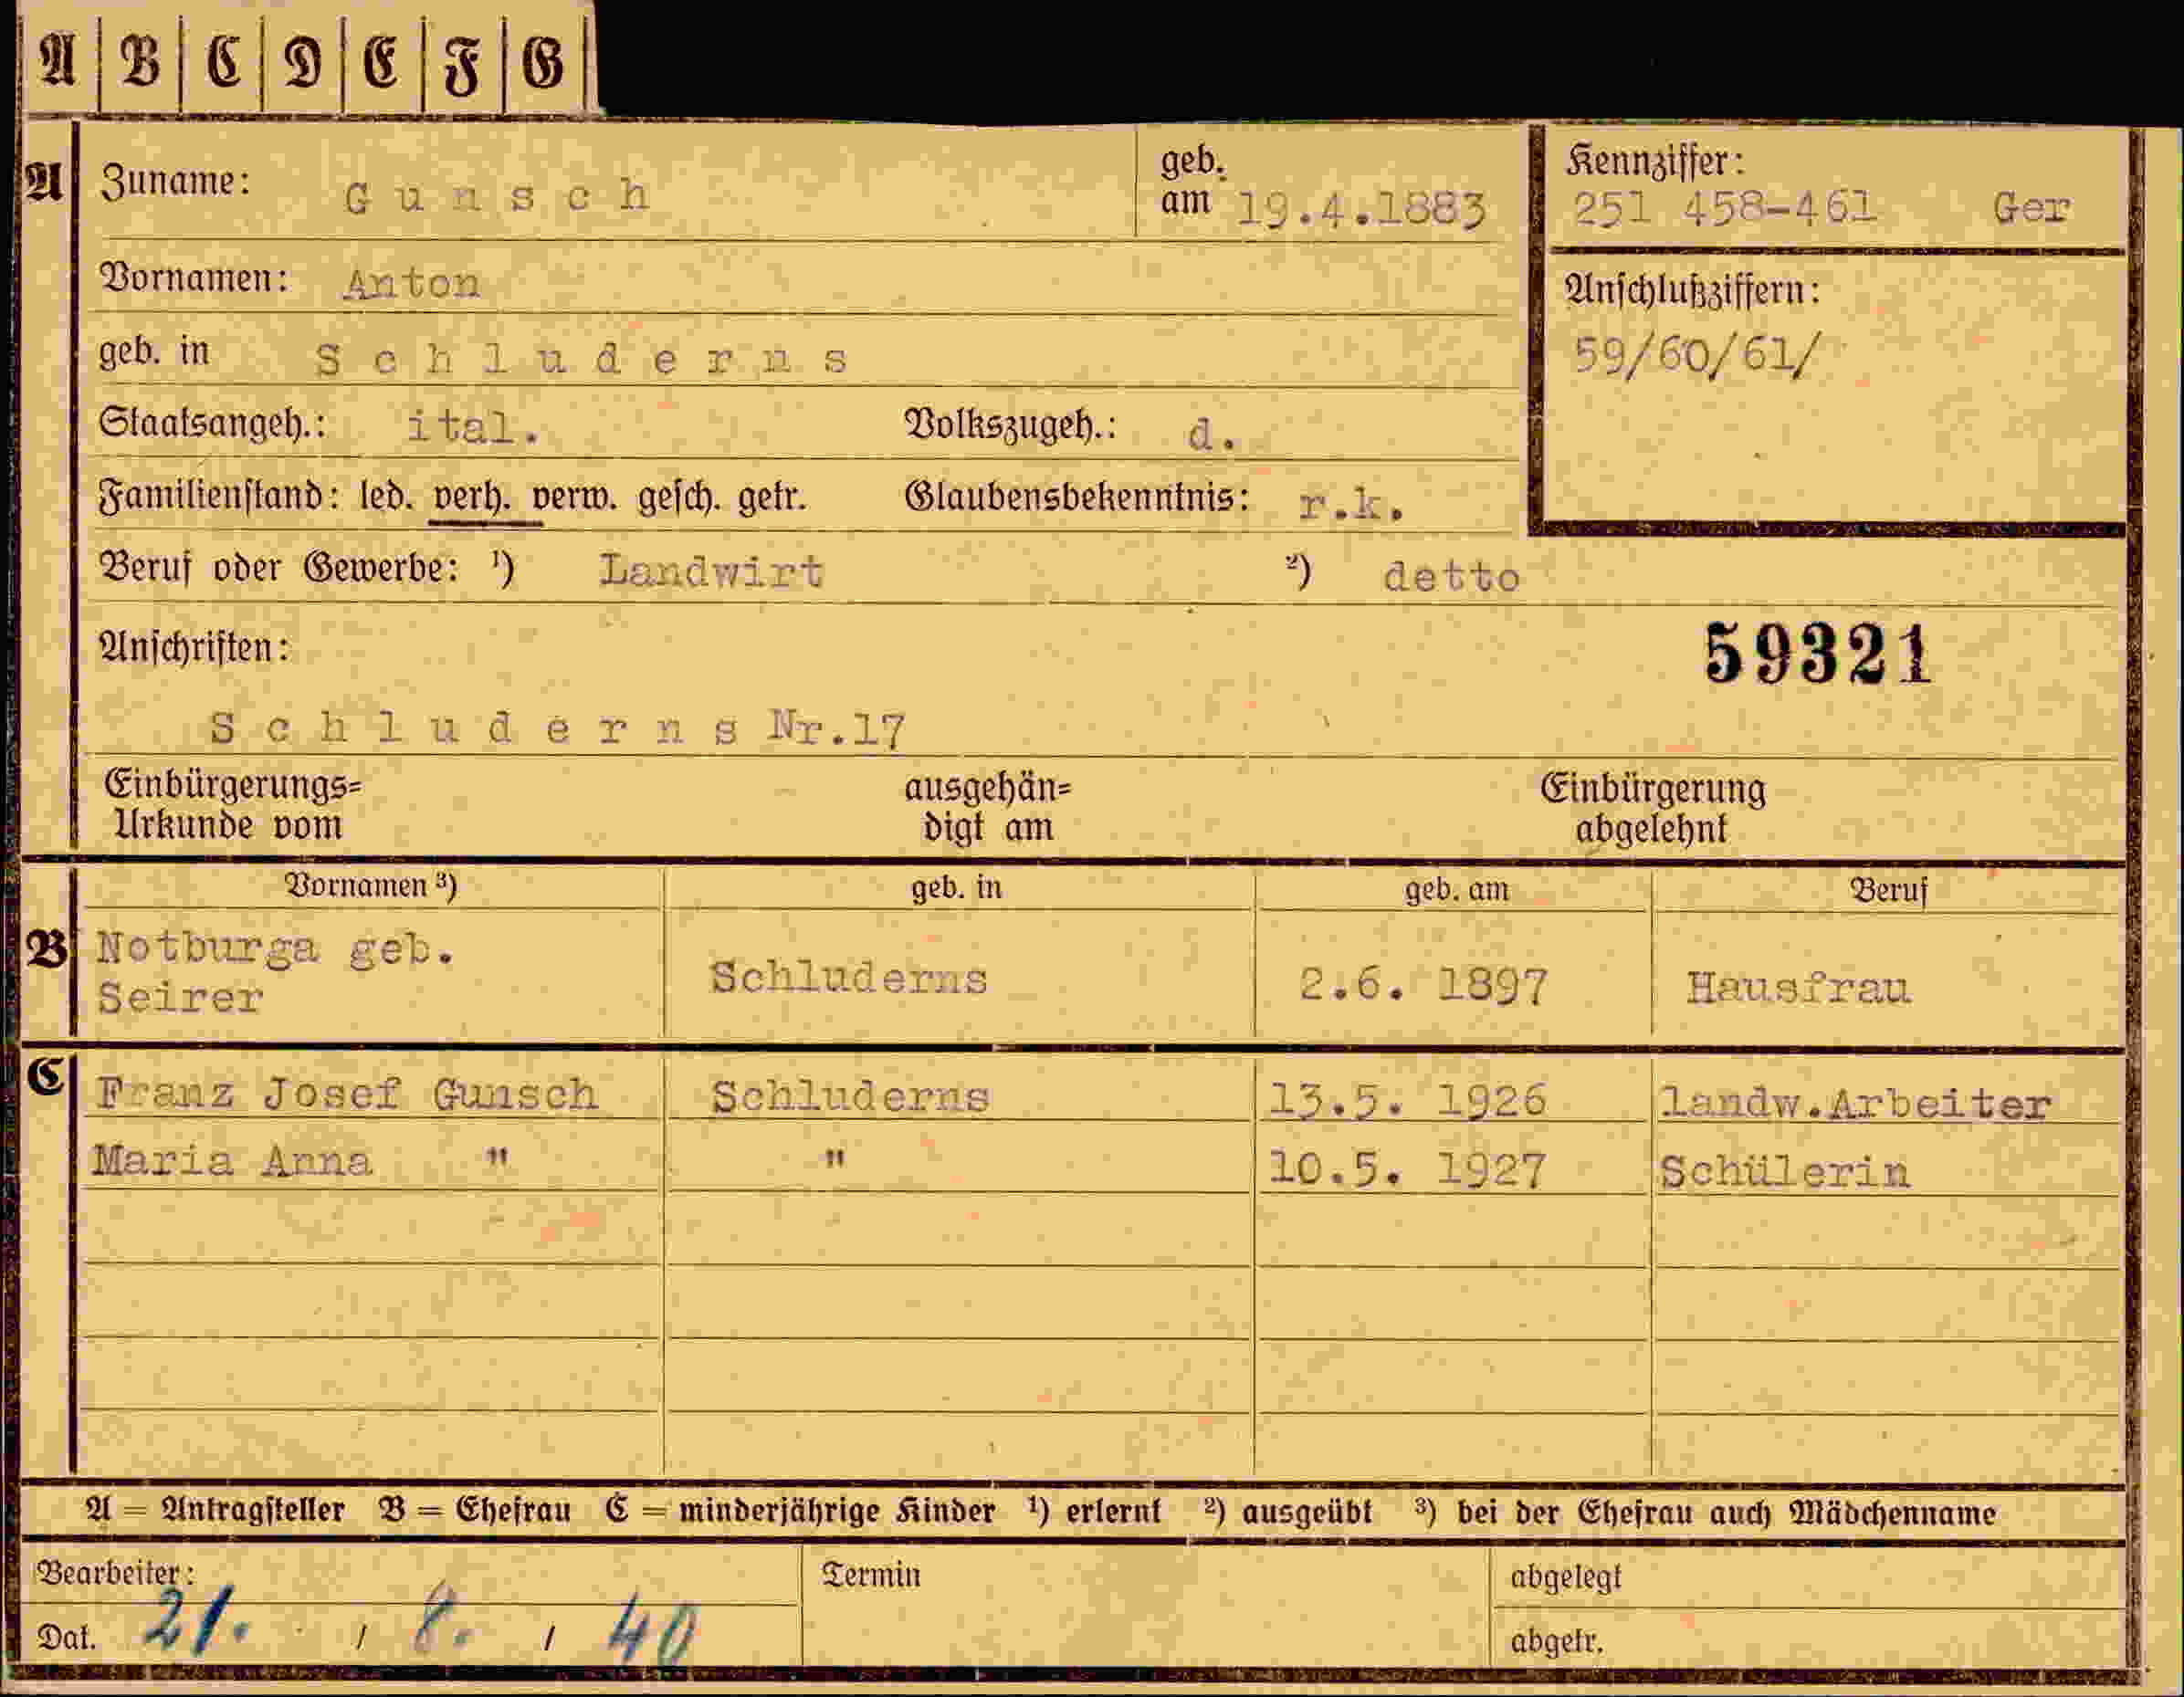 A B C D E F G
A Zuname: Gunsch geb. am 19.4.1883 Kennziffer:
251 458-461 Ger
Vornamen: Anton Anschlußziffern:
geb. in Schluderns 59/60/61/
Staatsangeh.: ital. Volkszugeh.: d.
Familienstand: led. verh. verw. gesch. getr. Glaubensbekenntnis: r.k.
Beruf oder Gewerbe: ¹) Landwirt ²) detto
Anschriften: 59321
Schluderns Nr.17
Einbürgerungs= ausgehän= Einbürgerung
Urkunde vom digt am abgelehnt
Vornamen ³) geb. in geb. am Beruf
B Notburga geb.
Seirer Schluderns 2.6. 1897 Hausfrau
C Franz Josef Gunsch Schluderns 13.5. 1926 landw.Arbeiter
Maria Anna " " 10.5. 1927 Schülerin
A = Antragsteller B = Ehefrau C = minderjährige Kinder ¹) erlernt ²) ausgeübt ³) bei der Ehefrau auch Mädchenname
Bearbeiter: Termin abgelegt
Dat. 21. / 8. / 40 abgetr.